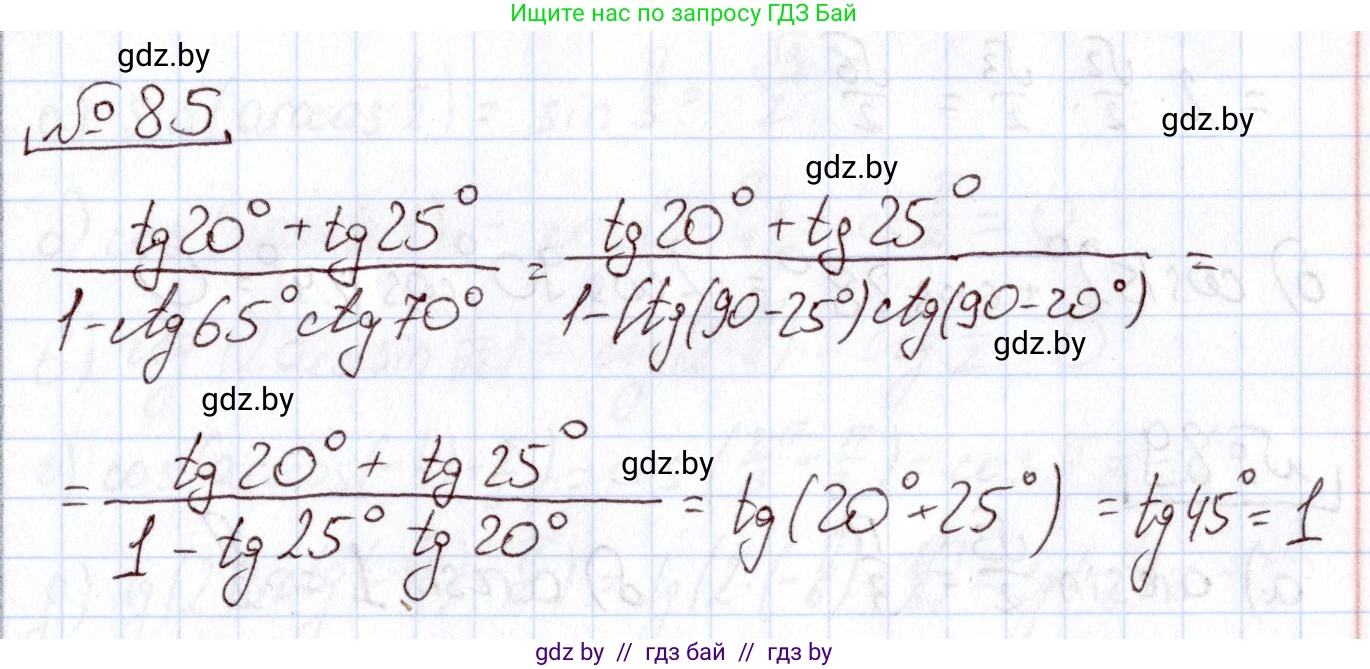 Ищите нас по запросу ГДЗ Бай
gdz.by
№ 85
gdz.by
gdz.by
tg20° + tg25° / 1 - ctg65° ctg70° = tg20° + tg25° / 1 - ctg(90-25°) ctg(90-20°) =
gdz.by
gdz.by
= tg20° + tg25° / 1 - tg25° tg20° = tg(20°+25°) = tg45° = 1
gdz.by
gdz.by // гдз бай // гдз by